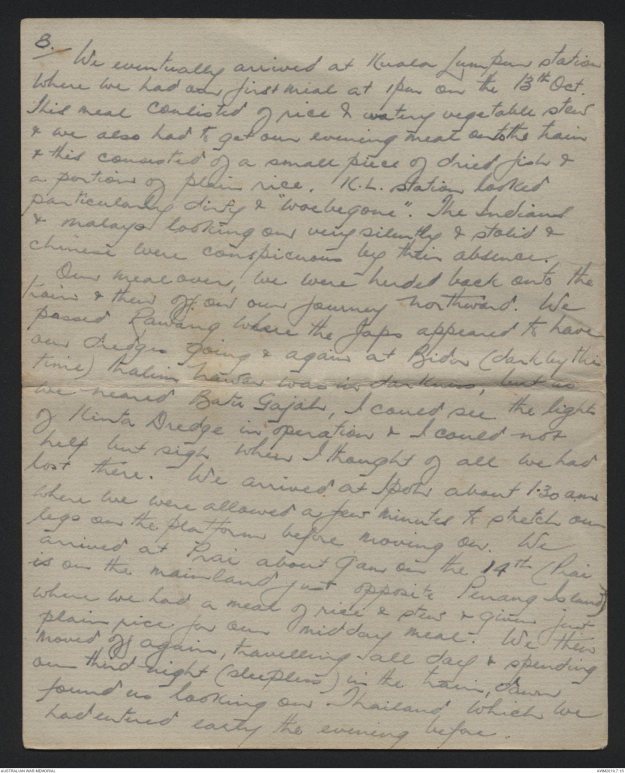 3. We eventually arrived at Kuala Lumpur station
where we had our first meal at 1pm on the 13th Oct.
This meal consisted of rice & watery vegetable stew
& we also had to get our evening meal onto the train
& this consisted of a small piece of dried fish &
a portion of plain rice. K.L. station looked
particularly dirty & "woebegone". The Indians
& Malays looking on very silently & stolid &
Chinese were conspicuous by their absence.
Our meal over, we were herded back onto the
train & then off on our journey northward. We
passed Rawang where the Japs appeared to have
our dredges going & again at Bidor (dark by this
time) was in darkness, but as
we neared Batu Gajah, I could see the lights
of Kinta Dredge in operation & I could not
help but sigh when I thought of all we had
lost there. We arrived at Ipoh about 1.30 am
where we were allowed a few minutes to stretch our
legs on the platform before moving on. We
arrived at Prai about 9am on the 14th (Prai
is on the mainland just opposite Penang Island)
where we had a meal of rice & stew & given just
plain rice for our midday meal. We then
moved off again, travelling all day & spending
our third night (sleepless) in the train, dawn
found us looking on Thailand which we
had entered early the evening before.
AUSTRALIAN WAR MEMORIAL